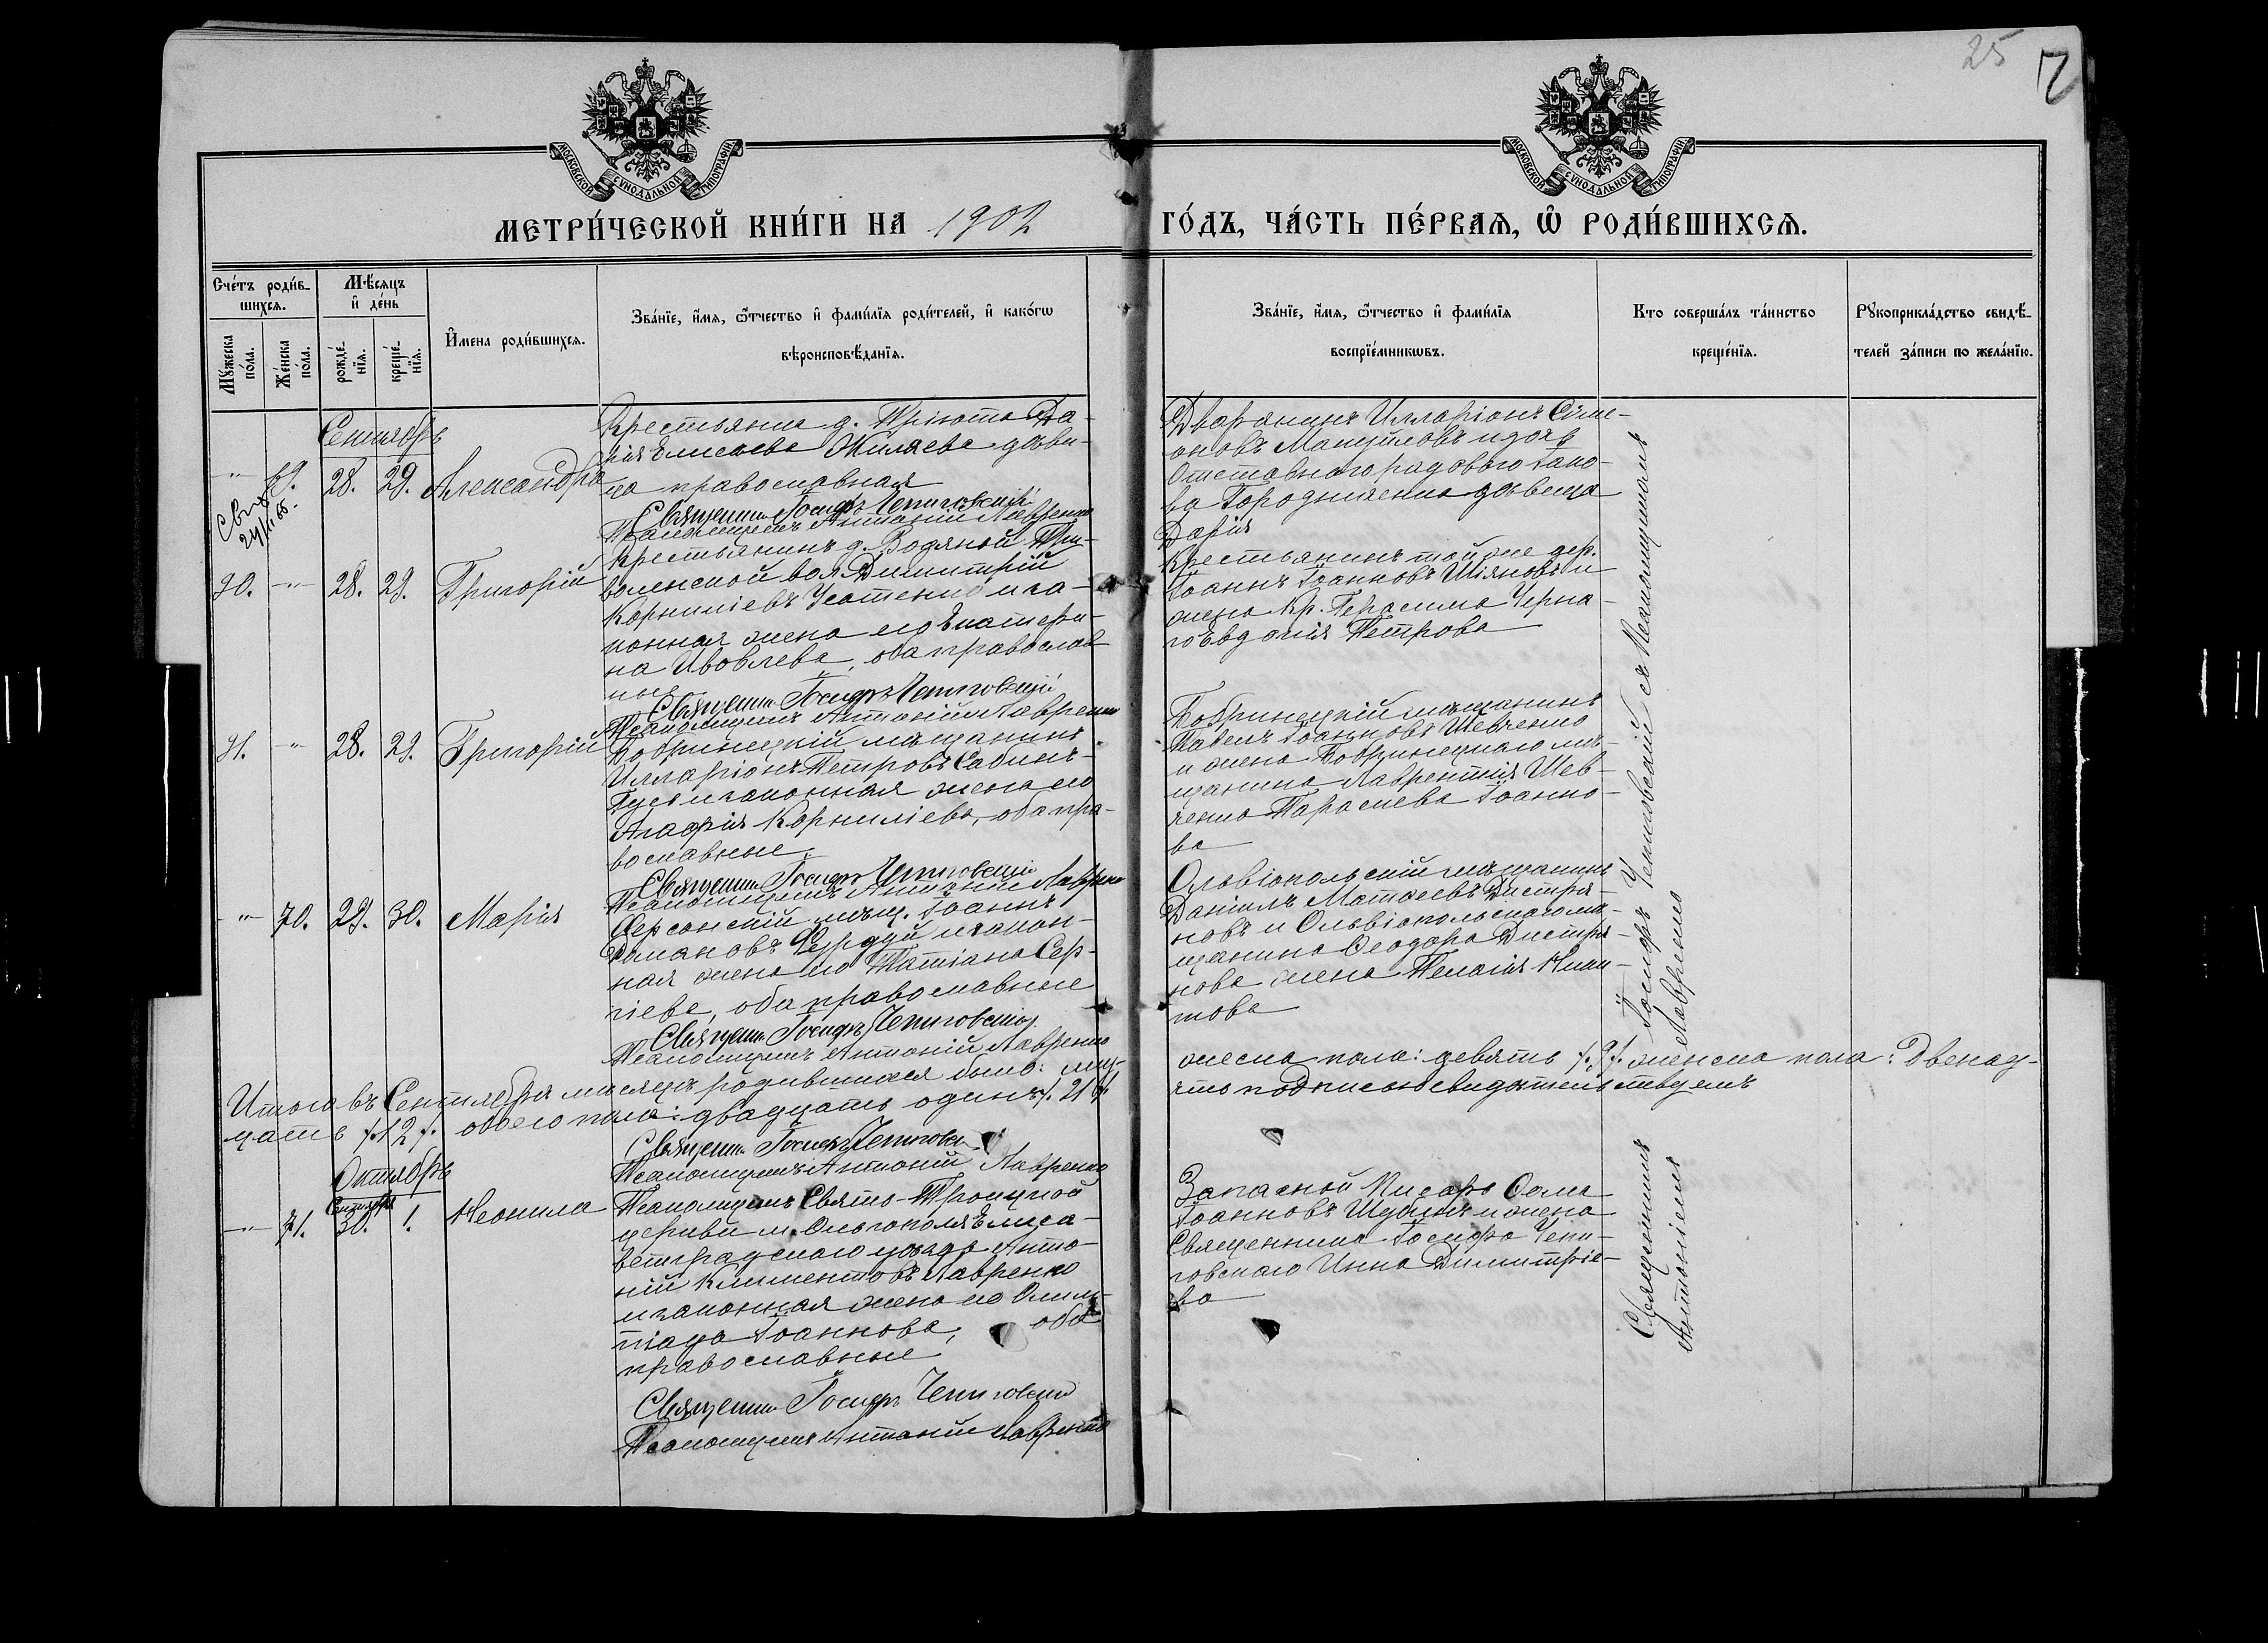 25
МОСКОВСКОЙ СѴНОДАЛЬНОЙ ТИПОГРАФІИ
МОСКОВСКОЙ СѴНОДАЛЬНОЙ ТИПОГРАФІИ
МЕТРИ́ЧЕСКОЙ КНИ́ГИ НА 1902
ГО́ДЪ, ЧА́СТЬ ПЕ́РВАѦ, Ѽ РОДИ́ВШИХСѦ.
Сче́тъ роди́в-
шихсѧ.
Мѣ́сѧцъ
и҆ де́нь
Мꙋ́жеска
по́ла.
Же́нска
по́ла.
рожде́-
нїѧ.
креще́-
нїѧ.
И҆мена роди́вшихсѧ.
Зва́нїе, и҆́мѧ, ѻ҆́тчество и҆ фами́лїѧ роди́телей, и҆ како́гѡ
вѣроисповѣ́данїѧ.
Зва́нїе, и҆́мѧ, ѻ҆́тчество и҆ фами́лїѧ
воспрїе́мникѡвъ.
Кто соверша́лъ та́инство
креще́нїѧ.
Рꙋкоприкла́дство свидѣ́-
телей за́писи по жела́нїю.
Сентябрь
" 69. 28. 29. Александра
Крестьянка д. Пріюта Да-
рія Елисеева Жиляева дѣви-
ца православная
Священн. Іосифъ Чепиговскій
Псаломщикъ Антоній Лавренко
Дворянинъ Илларіонъ Симе-
оновъ Мануйловъ и дочь
Отставного рядового Іако-
ва Городниченка дѣвица
Дарія
30. " 28. 29. Григорій
Крестьянинъ д. Водяной При-
воленской вол. Димитрій
Корниліевъ Усатенко и за-
конная жена его Екатери-
на Іаковлева, оба православ
ные
Священн. Іосифъ Чепиговскій
Псаломщикъ Антоній Лавренко
Крестьянинъ той же дер.
Іоаннъ Іоанновъ и
жена Кр. Герасима Черна-
го Евдокія Петрова
31. " 28. 29. Григорій
Бобринецкій мѣщанинъ
Илларіонъ Петровъ
и законная жена его
Агафія Корниліева, оба пра-
вославные
Священн. Іосифъ Чепиговскій
Псаломщикъ Антоній Лавренко
Бобринецкій мѣщанинъ
Павелъ Іоанновъ Шевченко
и жена Бобринецкаго мѣ-
щанина Лаврентія Шев-
ченко Параскева Іоанно-
ва
" 70. 29. 30. Марія
Херсонскій мѣщ. Іоаннъ
Романовъ и закон-
ная жена его Татіана Сер-
гіева, оба православные
Священн. Іосифъ Чепиговскій
Псаломщикъ Антоній Лавренко
Ольвіопольскій мѣщанинъ
Даніилъ Матѳеевъ
и Ольвіопольскаго мѣ-
щанина Ѳеодора
жена Пелагія
това
Итого въ Сентябрѣ мѣсяцѣ родившихся было: муж-
жеска пола: девять /.9/. женска пола: Двенад-
цать /.12/. обоего пола: двадцать одинъ /.21/.
что подписью свидѣтельствуемъ
Священн. Іосифъ Чепиговскій
Псаломщикъ Антоній Лавренко
Октябрь
Сентября
" 71. 30. 1. Неонила
Псаломщикъ Свято-Троицкой
церкви м. Ольгополя Елиса-
ветградскаго уѣзда Анто-
ній Климентовъ Лавренко
и законная жена его Олим-
піада Іоаннова, оба
православные
Священн. Іосифъ Чепиговскій
Псаломщикъ Антоній Лавренко
Запасной Писарь Ѳома
Іоанновъ и жена
Священника Іосифа Чепи-
говскаго Анна Димитріе-
ва
Священникъ Іосифъ Чепиговскій съ Псаломщикомъ
Антоніемъ Лавренко